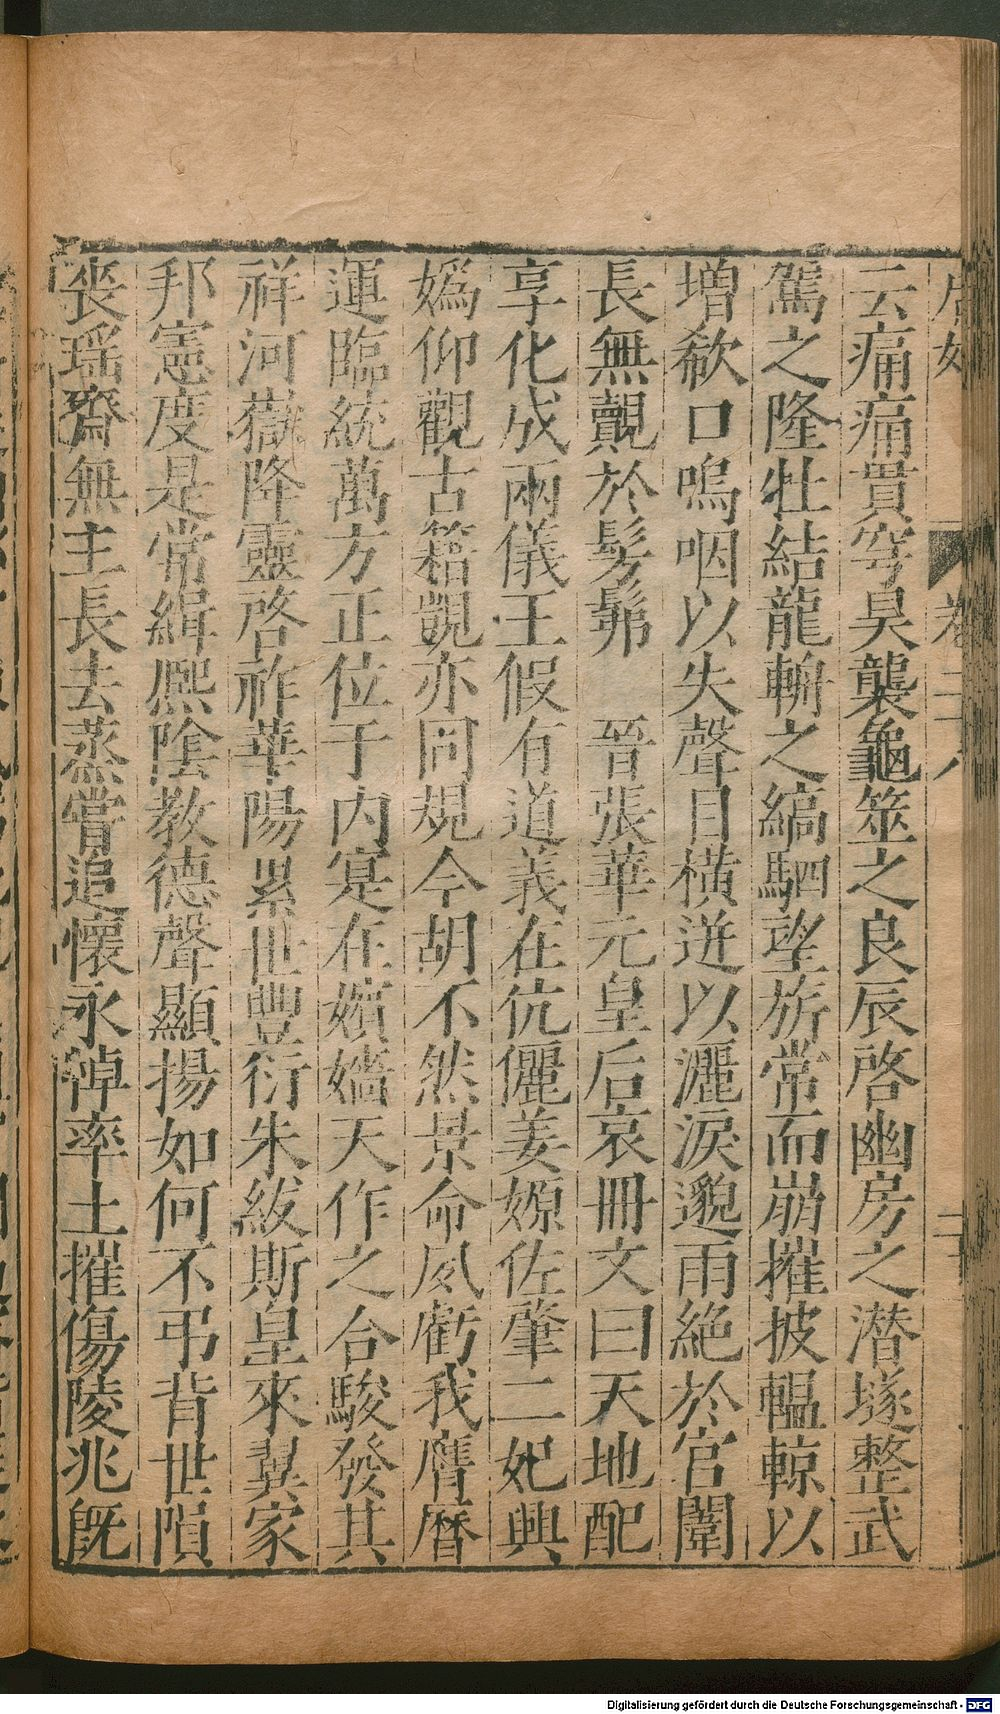 云痛痛貫穹昊襲龜筮之良辰啓幽房之潜墜整武
駕之隆牡結龍輀之縞駟望旂常而崩摧披轀輬以
増欷口嗚咽以失聲目横迸以灑淚邈雨絶於宫闈
長無覿於髣髴　晉張華元皇后哀冊文曰天地配
享化成兩儀王假有道義在伉儷姜嫄佐肇二妃興
嬀仰觀古籍覬亦同規今胡不然景命夙虧我膺曆
運臨統萬方正位于内寔在嬪嬙天作之合駿發其
祥河嶽降靈啓祚華陽累世豐衍朱紱斯皇來翼家
邦憲度是常緝熈陰教德聲顯揚如何不弔背世隕
喪瑶齋無主長去蒸嘗追懷永悼率土摧傷陵兆旣
卷二十八
Digitalisierung gefördert durch die Deutsche Forschungsgemeinschaft - DFG